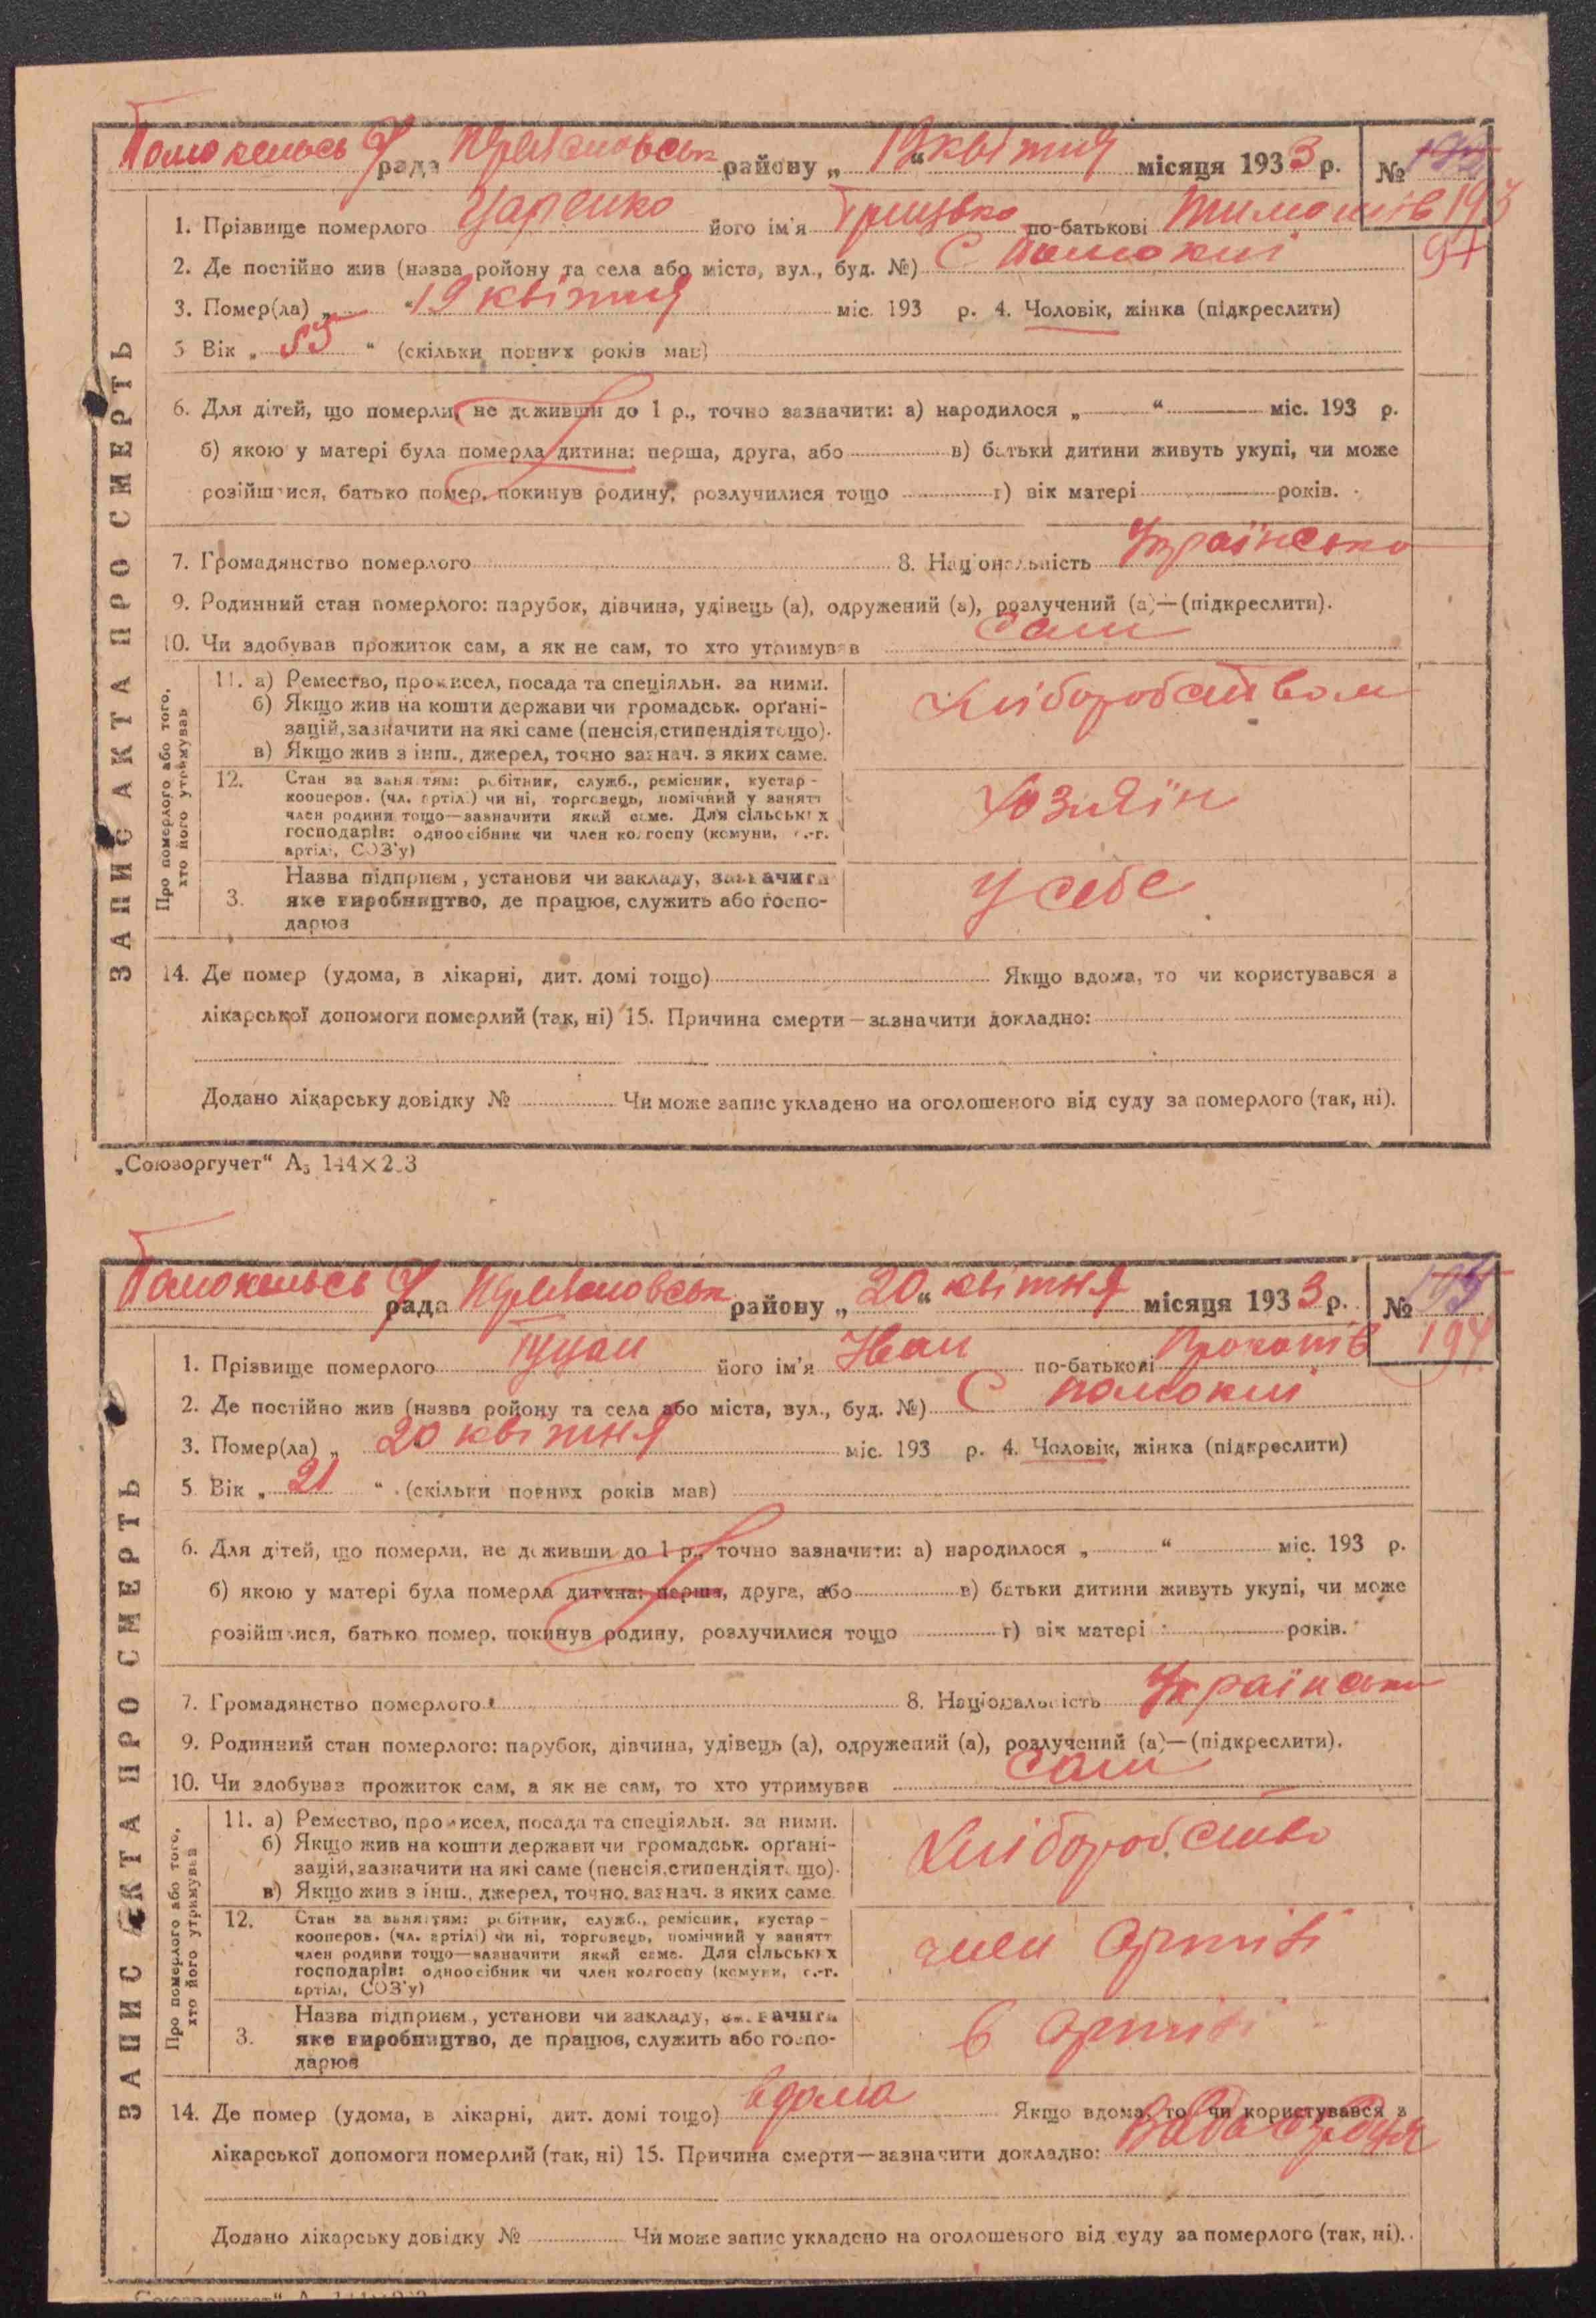 Помокельсь рада Переяловськ району „ 19 “ квітня місяця 1933 р. №
193
97
ЗАПИС АКТА ПРО СМЕРТЬ
1. Прізвище померлого Царенко його ім'я Грицько по-батькові Тимошів
2. Де постійно жив (назва ройону та села або міста, вул., буд. №) С Помоклі
3. Помер(ла) „ “ 19 квітня міс. 193 р. 4. Чоловік, жінка (підкреслити)
5 Вік „ 55 “ (скільки повних років мав)
6. Для дітей, що померли, не доживши до 1 р., точно зазначити: а) народилося „ “ міс. 193 р.
б) якою у матері була померла дитина: перша, друга, або в) батьки дитини живуть укупі, чи може
розійшлися, батько помер, покинув родину, розлучилися тощо г) вік матері років.
7. Громадянство померлого 8. Національність Українсько
9. Родинний стан померлого: парубок, дівчина, удівець (а), одружений (а), розлучений (а)—(підкреслити).
10. Чи здобував прожиток сам, а як не сам, то хто утримував сам
Про померлого або того, хто його утримував
11. а) Ремество, промисел, посада та спеціяльн. за ними.
б) Якщо жив на кошти держави чи громадськ. орґані-
зацій, зазначити на які саме (пенсія, стипендія тощо).
в) Якщо жив з інш., джерел, точно зазнач. з яких саме.
Хліборобством
12. Стан за заняттям: робітник, служб., ремісник, кустар -
кооперов. (чл. артіл.) чи ні, торговець, помічний у занятт
член родини тощо—зазначити який саме. Для сільських
господарів: одноосібник чи член колгоспу (комуни, с.-г.
артілі, СОЗ'у)
Хозяїн
3. Назва підприєм., установи чи закладу, зазначити
яке виробництво, де працює, служить або госпо-
дарює
У себе
14. Де помер (удома, в лікарні, дит. домі тощо) Якщо вдома, то чи користувався з
лікарської допомоги померлий (так, ні) 15. Причина смерти—зазначити докладно:
Додано лікарську довідку № Чи може запис укладено на оголошеного від суду за померлого (так, ні).
„Союзоргучет“ А₃ 144×203
Помокельсь рада Переяловськ району „ 20 “ квітня місяця 1933 р. №
194
ЗАПИС АКТА ПРО СМЕРТЬ
1. Прізвище померлого Гуцал його ім'я Иван по-батькові Прокопів
2. Де постійно жив (назва ройону та села або міста, вул., буд. №) С помоклі
3. Помер(ла) „ 20 квітня міс. 193 р. 4. Чоловік, жінка (підкреслити)
5 Вік „ 21 “ (скільки повних років мав)
6. Для дітей, що померли, не доживши до 1 р., точно зазначити: а) народилося „ “ міс. 193 р.
б) якою у матері була померла дитина: перша, друга, або в) батьки дитини живуть укупі, чи може
розійшлися, батько помер, покинув родину, розлучилися тощо г) вік матері років.
7. Громадянство померлого 8. Національність Українсько
9. Родинний стан померлого: парубок, дівчина, удівець (а), одружений (а), розлучений (а)—(підкреслити).
10. Чи здобував прожиток сам, а як не сам, то хто утримував сам
Про померлого або того, хто його утримував
11. а) Ремество, промисел, посада та спеціяльн. за ними.
б) Якщо жив на кошти держави чи громадськ. орґані-
зацій, зазначити на які саме (пенсія, стипендія тощо).
в) Якщо жив з інш., джерел, точно зазнач. з яких саме
Хліборобство
12. Стан за заняттям: робітник, служб., ремісник, кустар -
кооперов. (чл. артілі) чи ні, торговець, помічний у занятт
член родини тощо—зазначити який саме. Для сільських
господарів: одноосібник чи член колгоспу (комуни, с.-г.
артілі, СОЗ'у)
член Артілі
3. Назва підприєм., установи чи закладу, зазначити
яке виробництво, де працює, служить або госпо-
дарює
в Артілі
14. Де помер (удома, в лікарні, дит. домі тощо) вдома Якщо вдома, то чи користувався з
лікарської допомоги померлий (так, ні) 15. Причина смерти—зазначити докладно:
Додано лікарську довідку № Чи може запис укладено на оголошеного від суду за померлого (так, ні).